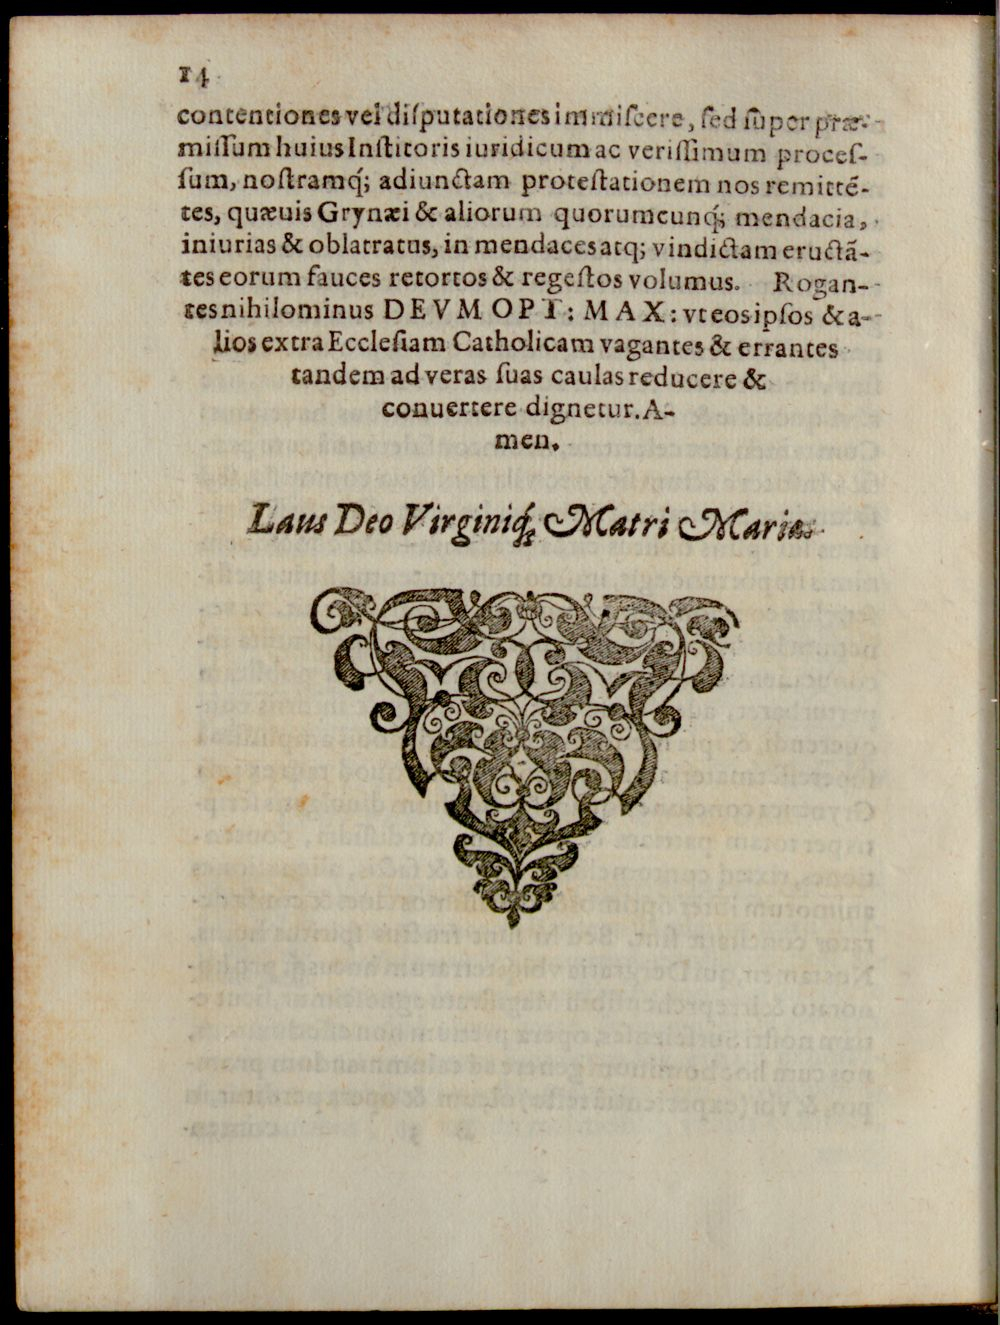 14
contentiones vel diſputationes immiſcere, ſed ſuper præ-
miſſum huius Inſtitoris iuridicum ac veriſſimum proceſ-
ſum, noſtramq́; adiunctam proteſtationem nos remittẽ-
tes, quæuis Grynæi & aliorum quorumcunq́; mendacia,
iniurias & oblatratus, in mendaces atq; vindictam eructã-
tes eorum fauces retortos & regeſtos volumus. Rogan-
tes nihilominus DEVM OPT: MAX: vt eos ipſos & a-
lios extra Eccleſiam Catholicam vagantes & errantes
tandem ad veras ſuas caulas reducere &
conuertere dignetur. A-
men.
Laus Deo Virginiq́; Matri Mariæ.